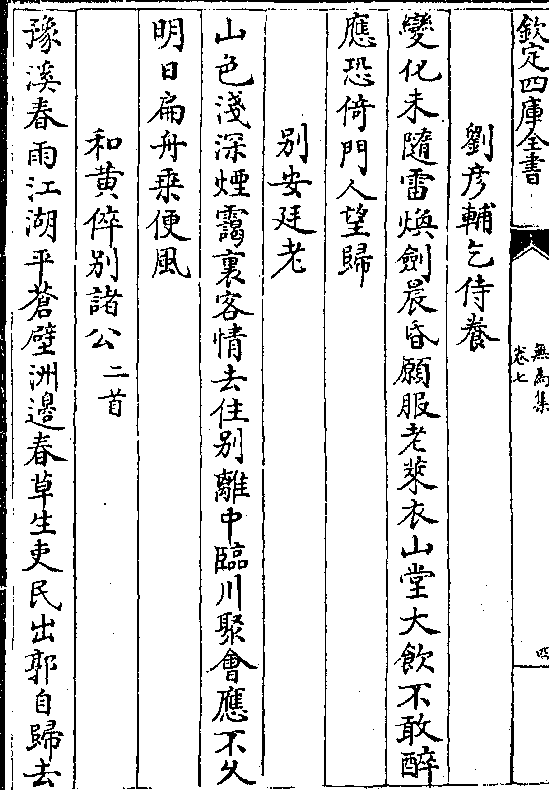 欽定四庫全書
無為集
卷七
四
劉彦輔乞侍養
變化未隨雷煥劍晨昏願服老萊衣山堂大飲不敢醉
應恐倚門人望歸
别安廷老
山色淺深煙靄裏客情去住别離中臨川聚會應不久
明日扁舟乗便風
和黄倅别諸公二首
豫溪春雨江湖平蒼壁洲邉春草生吏民出郭自歸去